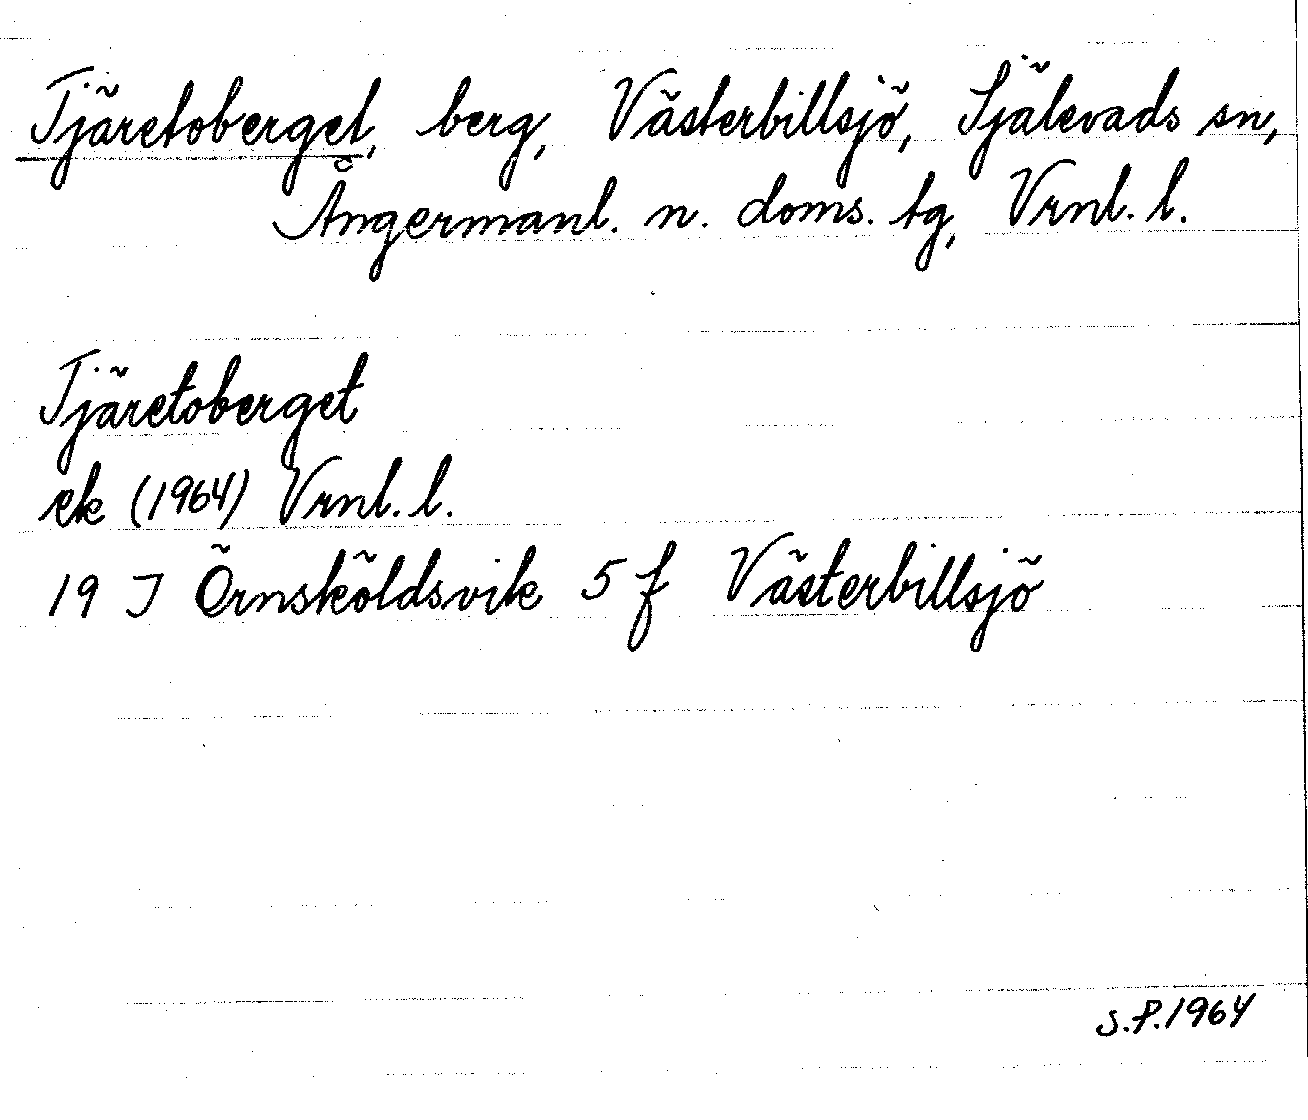 Tjäretoberget, berg, Västerbillsjö, Själevads sn,
Ångermanl. n. doms. tg, Vrnl. l.
Tjäretoberget
ek (1964) Vrnl. l.
19 J Örnsköldsvik 5 f Västerbillsjö
S.P. 1964